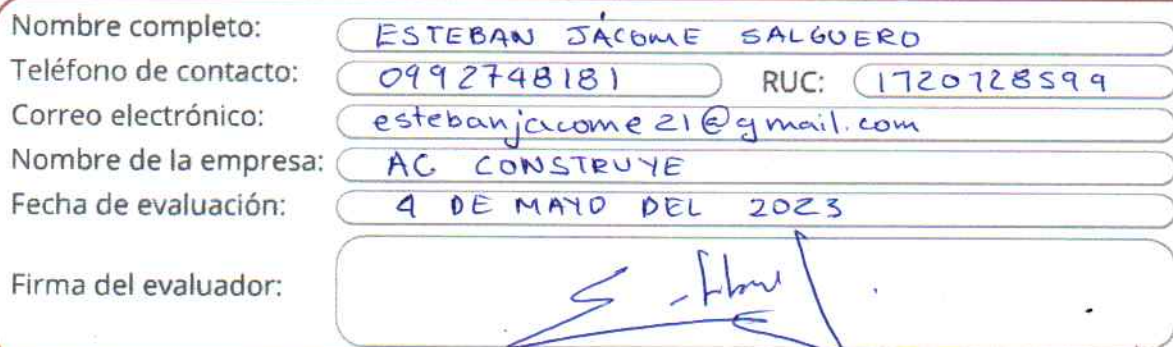 Nombre completo: ESTEBAN JÁCOME SALGUERO
Teléfono de contacto: 0992748181 RUC: 1720728599
Correo electrónico: estebanjacome21@gmail.com
Nombre de la empresa: AC CONSTRUYE
Fecha de evaluación: 4 DE MAYO DEL 2023
Firma del evaluador: